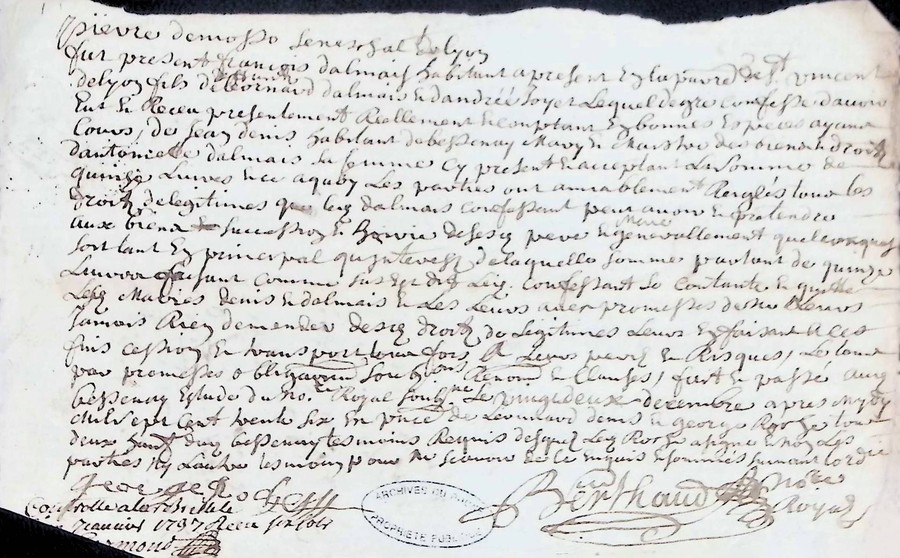 pierre demosso seneschal de lyon
fut present françois dalmais habitant a present en la parr. de st vincent
de lyon fils de deffunt leonard dalmais et dandrée Joyet lequel de gré confesse davoir
Eut et Receu presentement Reellement et contant En bonnes Especes ayant
Cours, de Jean denis habitant de bessenay Mary et Maistre des biens et droits
dantoinette dalmais sa femme Cy present et acceptant La Somme de
quinze Livres Et ce a quoy Les parties ont amiablement Reglés tous les
droits de legitimes que led dalmais confessant peut avoir et pretendre
aux biens et Succession et hoirie de sesd pere et mere et generallement quelconques
sortant En principal qu'interest de laquelle somme partant de quinze
Livres faisant comme sus Est dit Led. confessant se contante et quitte
Lesd Mariés denis et dalmais et Les Leurs avec promesses de ne Leurs
Jamais Rien demender desd droits de Legitimes Leurs En faisant a ces
fins cession et transport toutefois a Leurs perils et Risques, Le tout
par promesses obligations Soub.ons Renon.ons et Clauses, fait et passé aud
bessenay Estude du No.re Royal soubsig.né Le vingt deux decembre apres midy
mil sept cent vente six En p.nce de Leonnard denis et george Roche tous
deux dud bessenay tesmoins Requis desquels Led Roche a signé et non Les
parties ny Lautre tesmoin pour ne scavoir de ce Enquis et sommés suivant lordce
george Roche
Berthaud No.re
Royal
Controllé a larbresle le
janvier 1797 Receu six sols
ARCHIVES DU RHÔNE
PROPRIÉTÉ PUBLIQUE